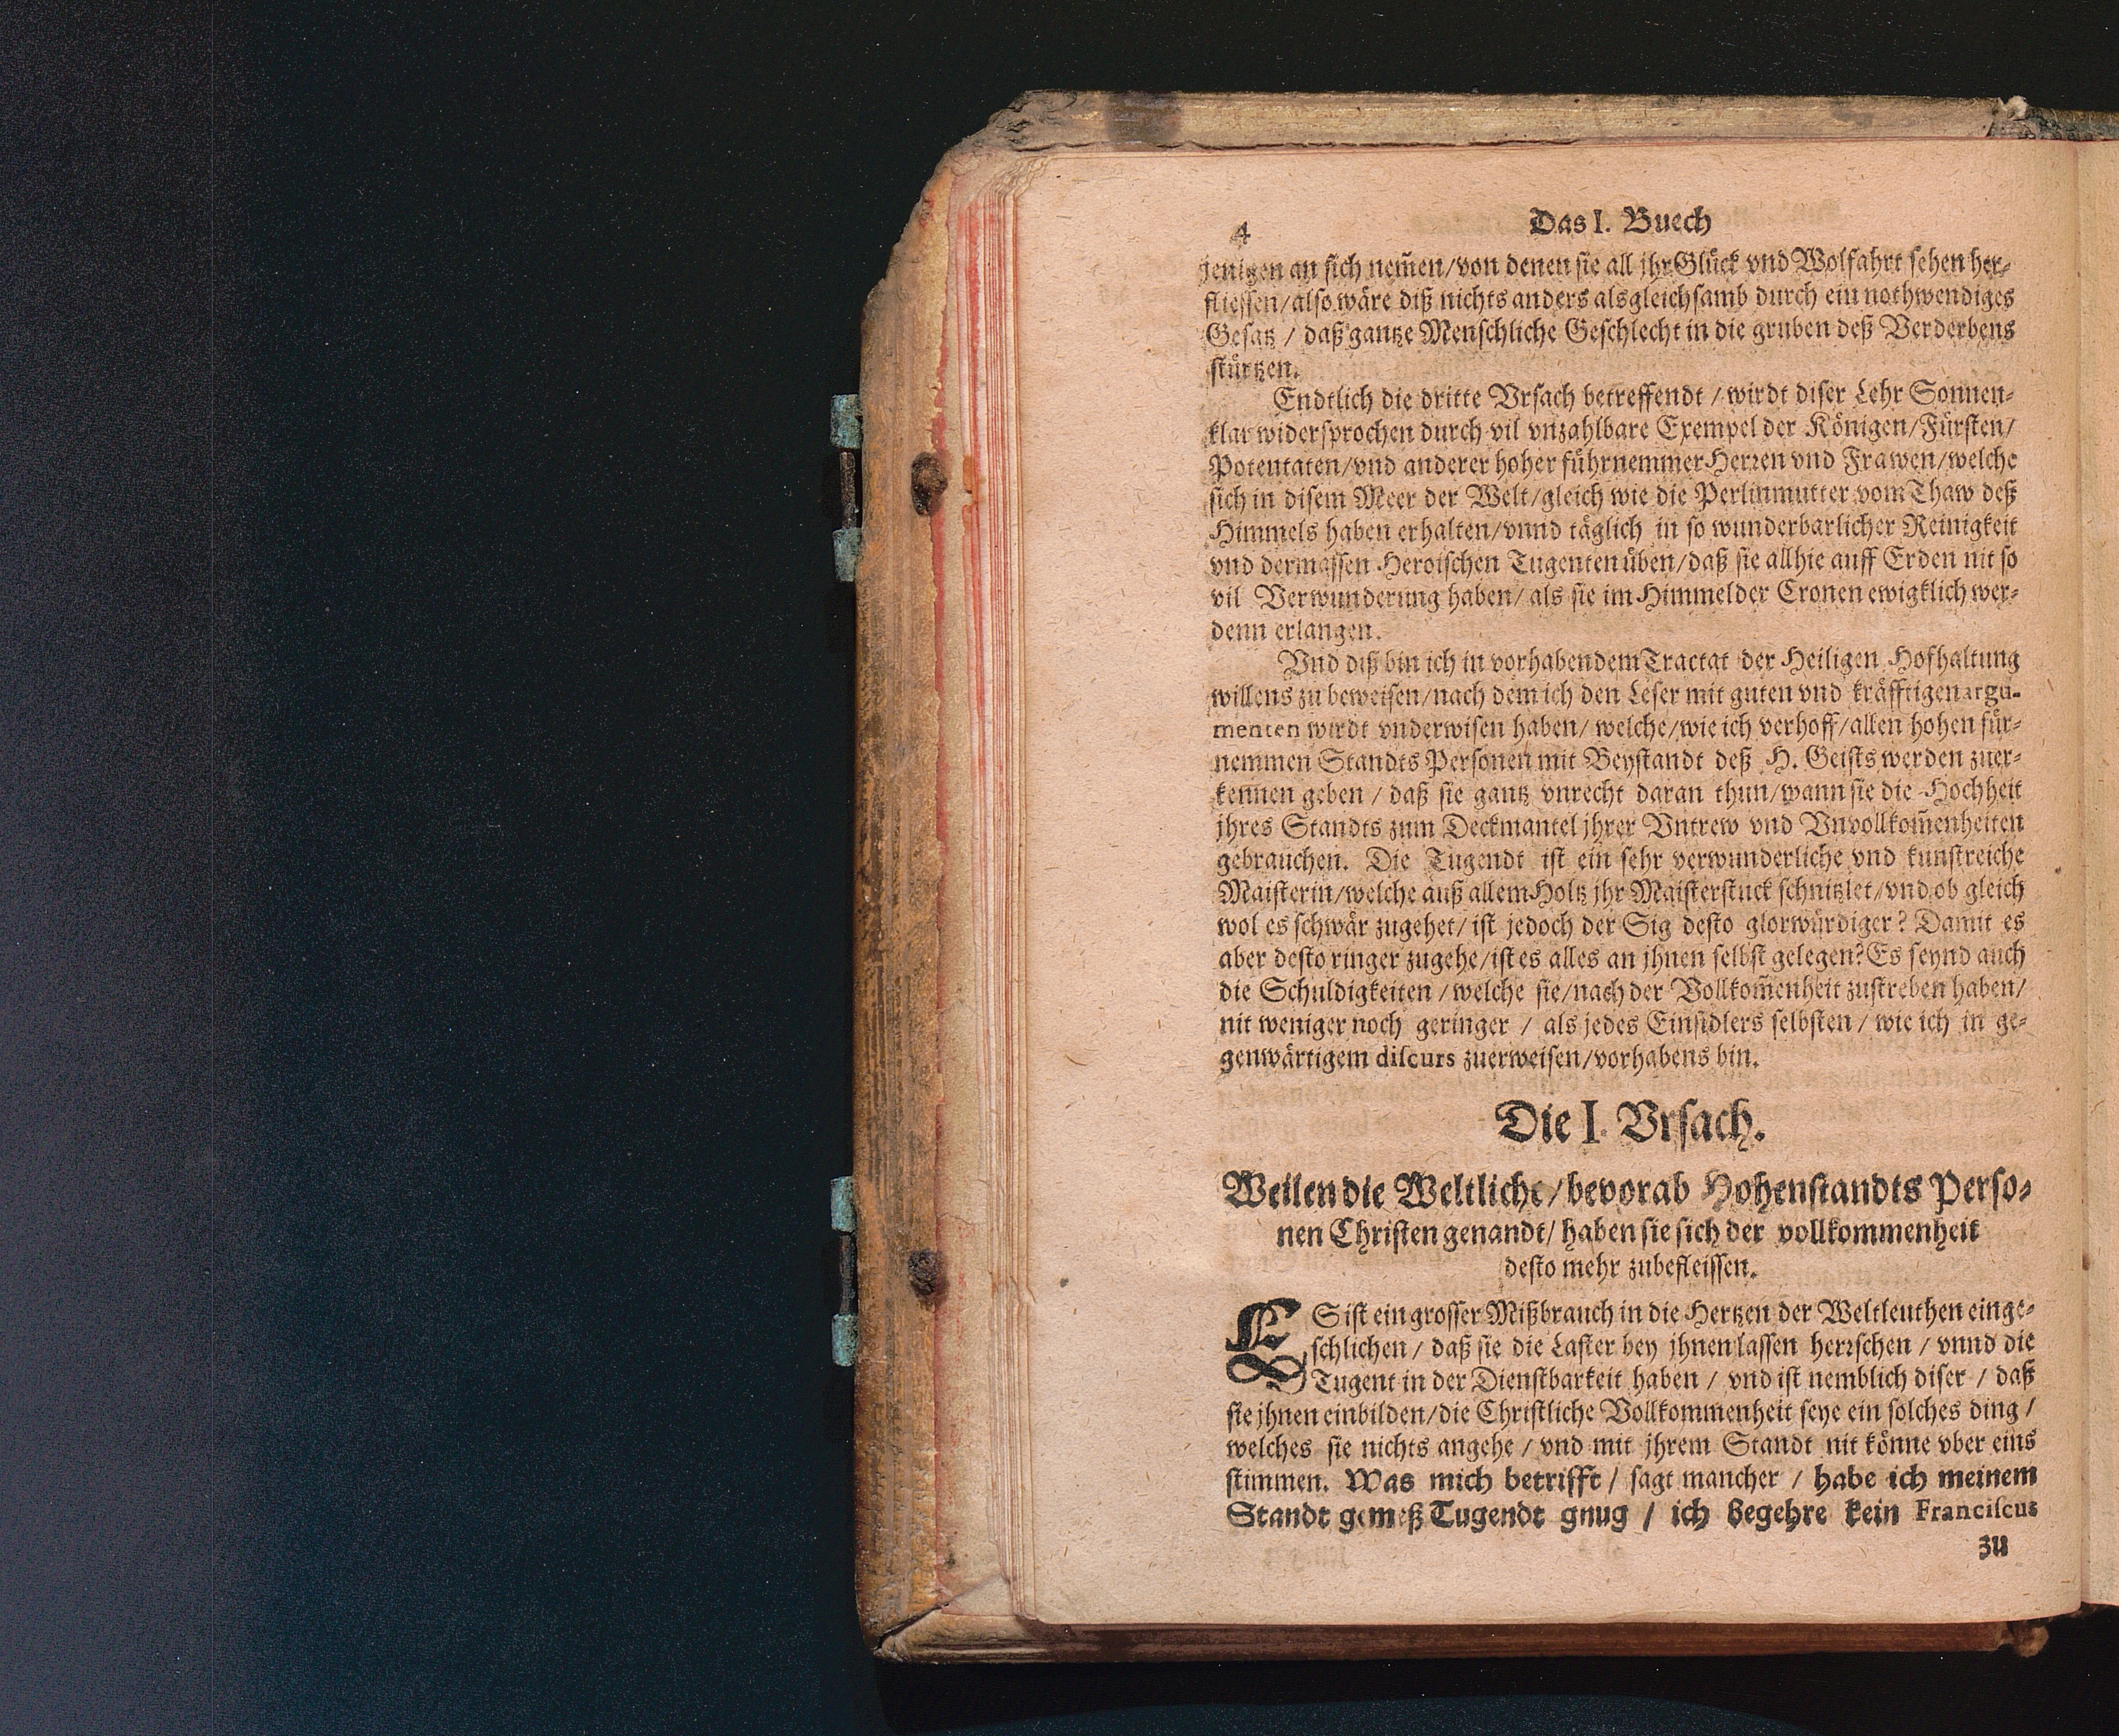 4 Das I. Buech
jenigen an sich nem̃en/von denen sie all jhr Glück vnd Wolfahrt sehen her-
fliessen/also wäre diß nichts anders als gleichsamb durch ein nothwendiges
Gesatz / daß gantze Menschliche Geschlecht in die gruben deß Verderbens
stürtzen.
Endtlich die dritte Vrsach betreffendt / wirdt diser Lehr Sonnen-
klar widersprochen durch vil vnzahlbare Exempel der Königen/Fürsten/
Potentaten/vnd anderer hoher führnemmer Herren vnd Frawen/welche
sich in disem Meer der Welt/gleich wie die Perlinmutter vom Thaw deß
Himmels haben erhalten/vnnd täglich in so wunderbarlicher Reinigkeit
vnd dermassen Heroischen Tugenten üben/daß sie allhie auff Erden nit so
vil Verwunderung haben/ als sie im Himmel der Cronen ewigklich wer-
denn erlangen.
Vnd diß bin ich in vorhabendem Tractat der Heiligen Hofhaltung
willens zu beweisen/nach dem ich den Leser mit guten vnd kräfftigen argu-
menten wirdt vnderwisen haben/ welche/wie ich verhoff/allen hohen für-
nemmen Standts Personen mit Beystandt deß H. Geists werden zuer-
kennen geben / daß sie gantz vnrecht daran thun/wann sie die Hochheit
jhres Standts zum Deckmantel jhrer Vntrew vnd Vnvollkom̃enheiten
gebrauchen. Die Tugendt ist ein sehr verwunderliche vnd kunstreiche
Maisterin/welche auß allem Holtz jhr Maisterstuck schnitzlet/vnd ob gleich
wol es schwär zugehet/ ist jedoch der Sig desto glorwürdiger? Damit es
aber desto ringer zugehe/ist es alles an jhnen selbst gelegen? Es seynd auch
die Schuldigkeiten / welche sie/nach der Vollkom̃enheit zustreben haben/
nit weniger noch geringer / als jedes Einsidlers selbsten / wie ich in ge-
genwärtigem discurs zuerweisen/vorhabens bin.
Die I. Vrsach.
Weilen die Weltliche/bevorab Hohenstandts Perso-
nen Christen genandt/ haben sie sich der vollkommenheit
desto mehr zubefleissen.
ES ist ein grosser Mißbrauch in die Hertzen der Weltleuthen einge-
schlichen / daß sie die Laster bey jhnen lassen herrschen / vnnd die
Tugent in der Dienstbarkeit haben / vnd ist nemblich diser / daß
sie jhnen einbilden/die Christliche Vollkommenheit seye ein solches ding /
welches sie nichts angehe / vnd mit jhrem Standt nit könne vber eins
stimmen. Was mich betrifft / sagt mancher / habe ich meinem
Standt gemeß Tugendt gnug / ich begehre kein Franciscus
zu